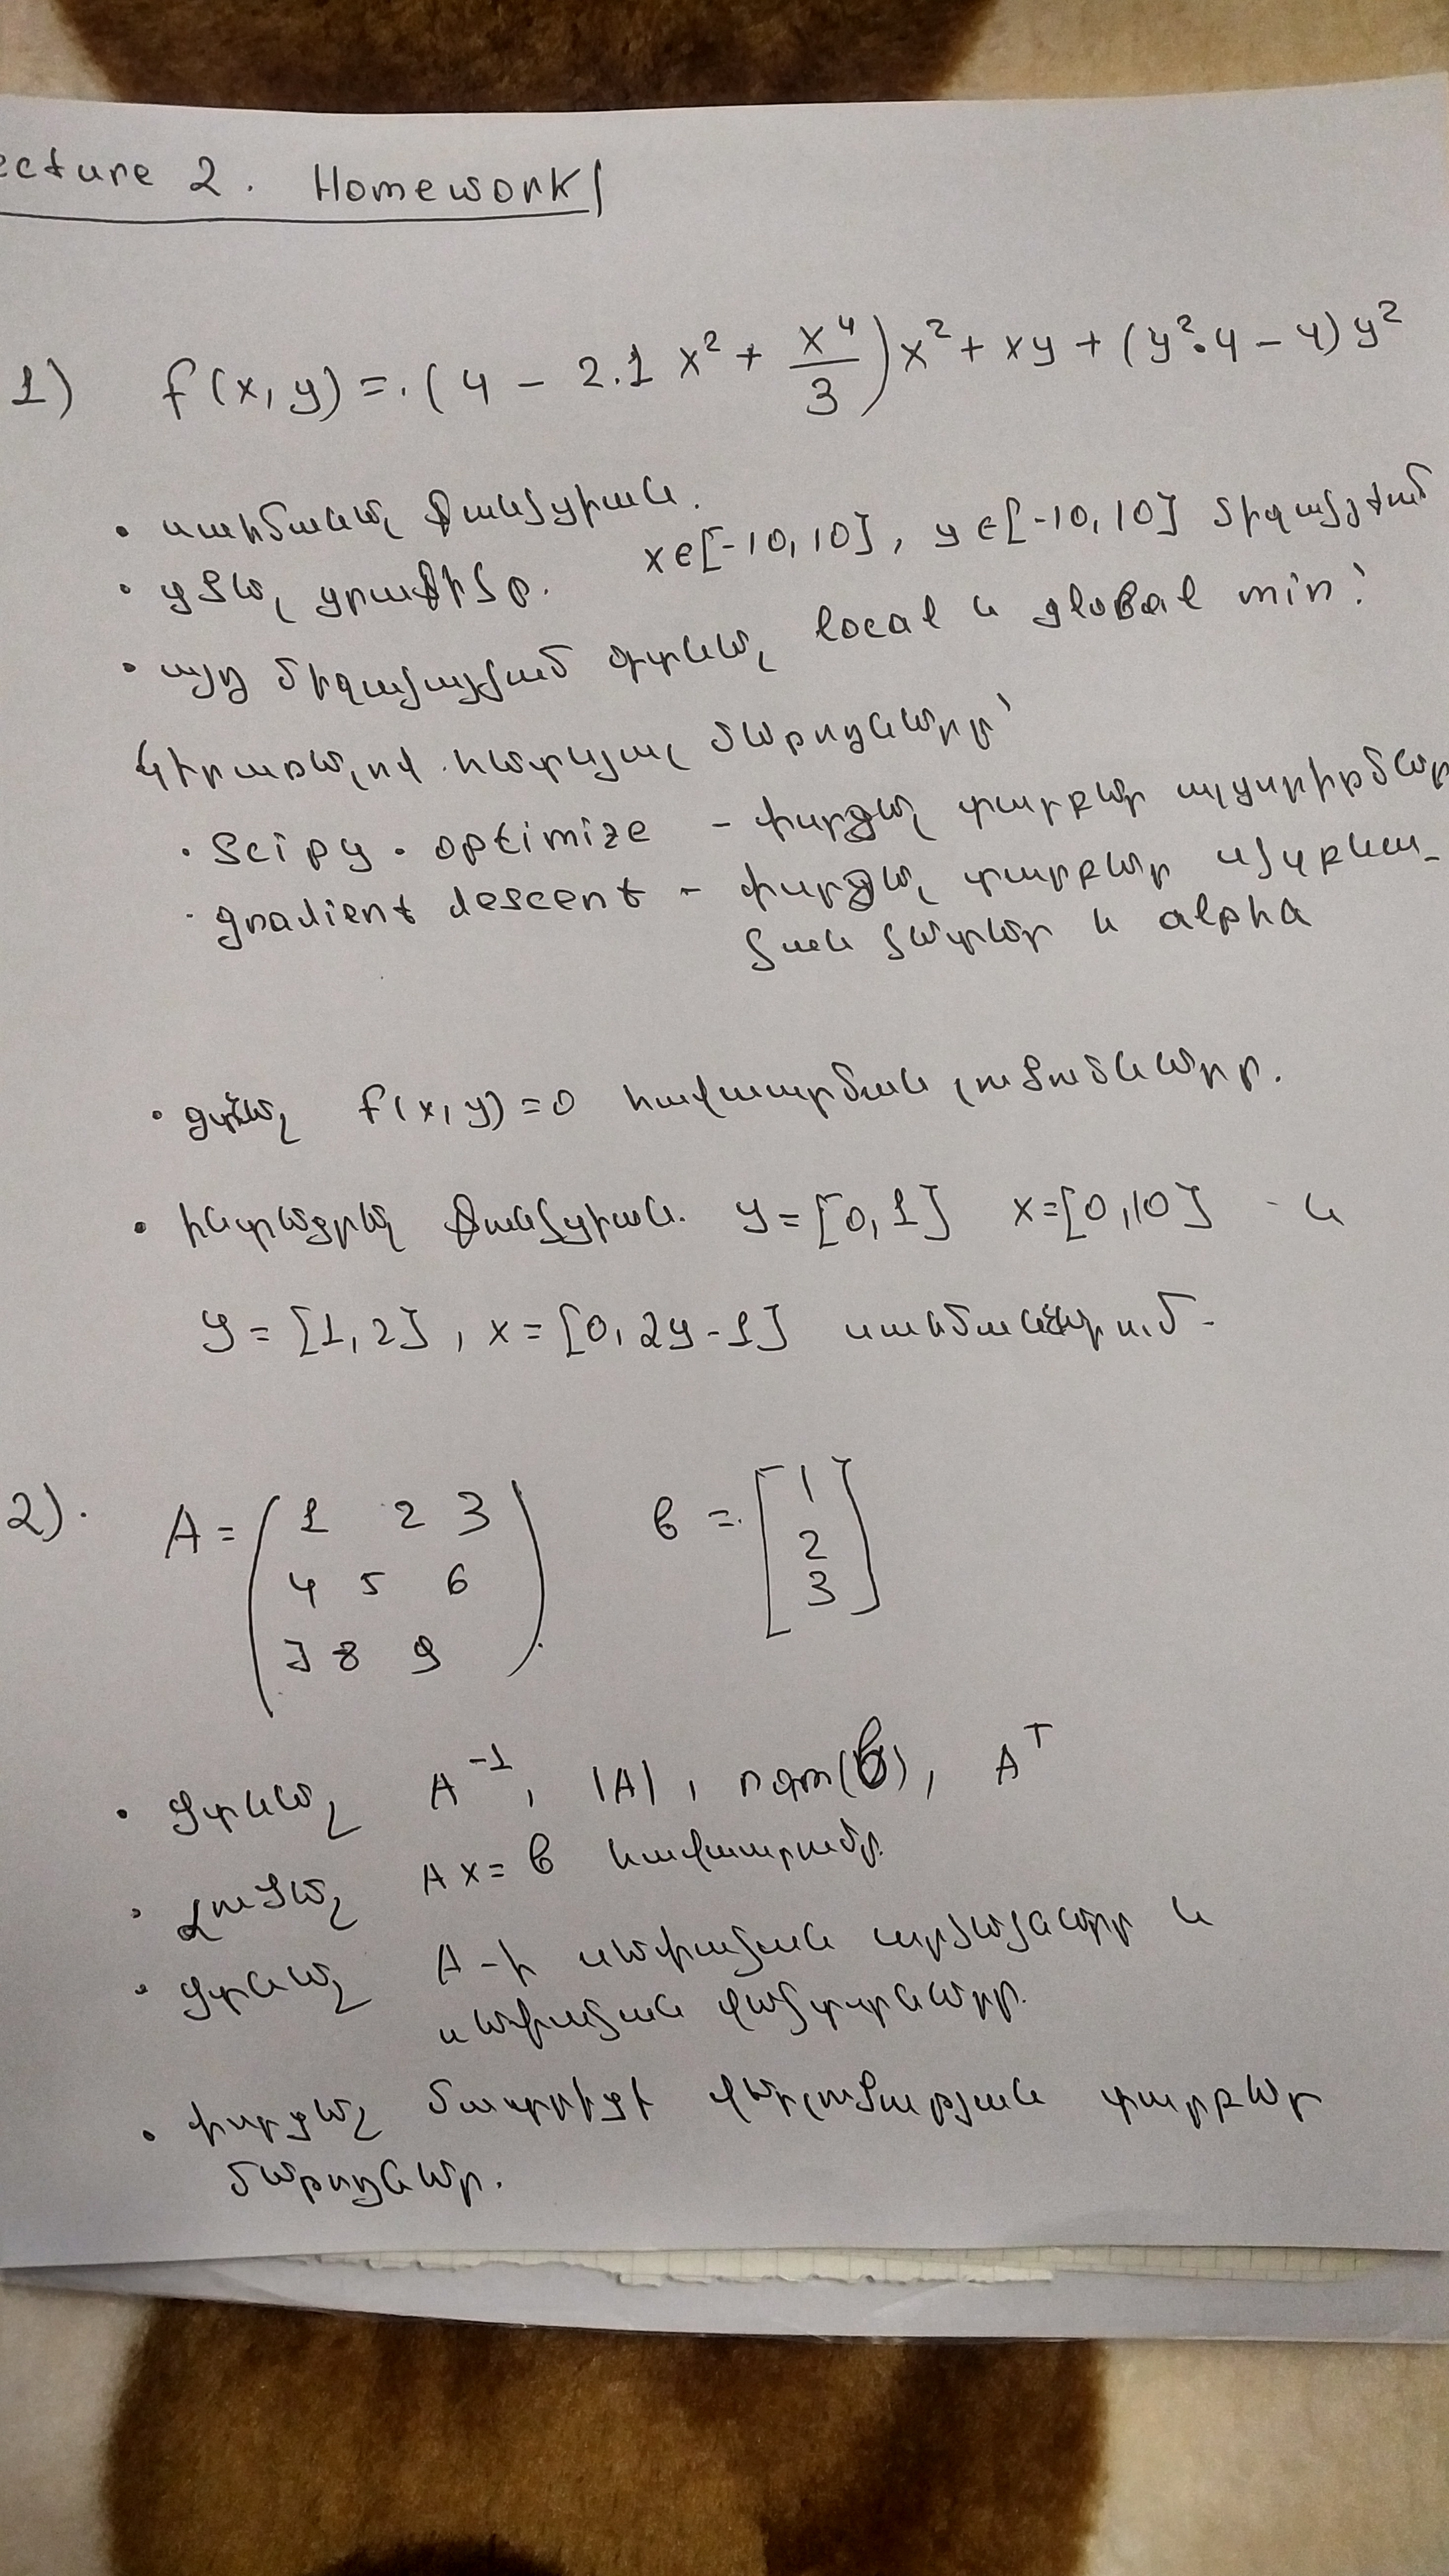 ecture 2. Homework
1) f(x,y) = (4 - 2.1 x² + x⁴/3) x² + xy + (y²·4 - 4) y²
• սահմանել ֆունկցիան.
• գծել գրաֆիկը. x∈[-10,10], y∈[-10,10] միջակայքում
• այդ միջակայքում գտնել local և global min:
Կիրառելով հետևյալ մեթոդները՝
• Scipy.optimize - փորձել տարբեր ալգորիթմներ
• gradient descent - փորձել տարբեր սկզբնա-
կան կետեր և alpha
• գտնել f(x,y)=0 հավասարման լուծումները.
• ինտեգրել ֆունկցիան. y=[0,1] x=[0,10] և
y=[1,2], x=[0,2y-1] սահմաններում.
2). A = (1 2 3 b = [1
4 5 6 2
7 8 9) 3]
• գտնել A⁻¹, |A|, norm(b), Aᵀ
• Լուծել Ax=b հավասարումը.
• գտնել A-ի սեփական արժեքները և
սեփական վեկտորները.
• փորձել մատրիցի վերլուծության տարբեր
մեթոդներ.